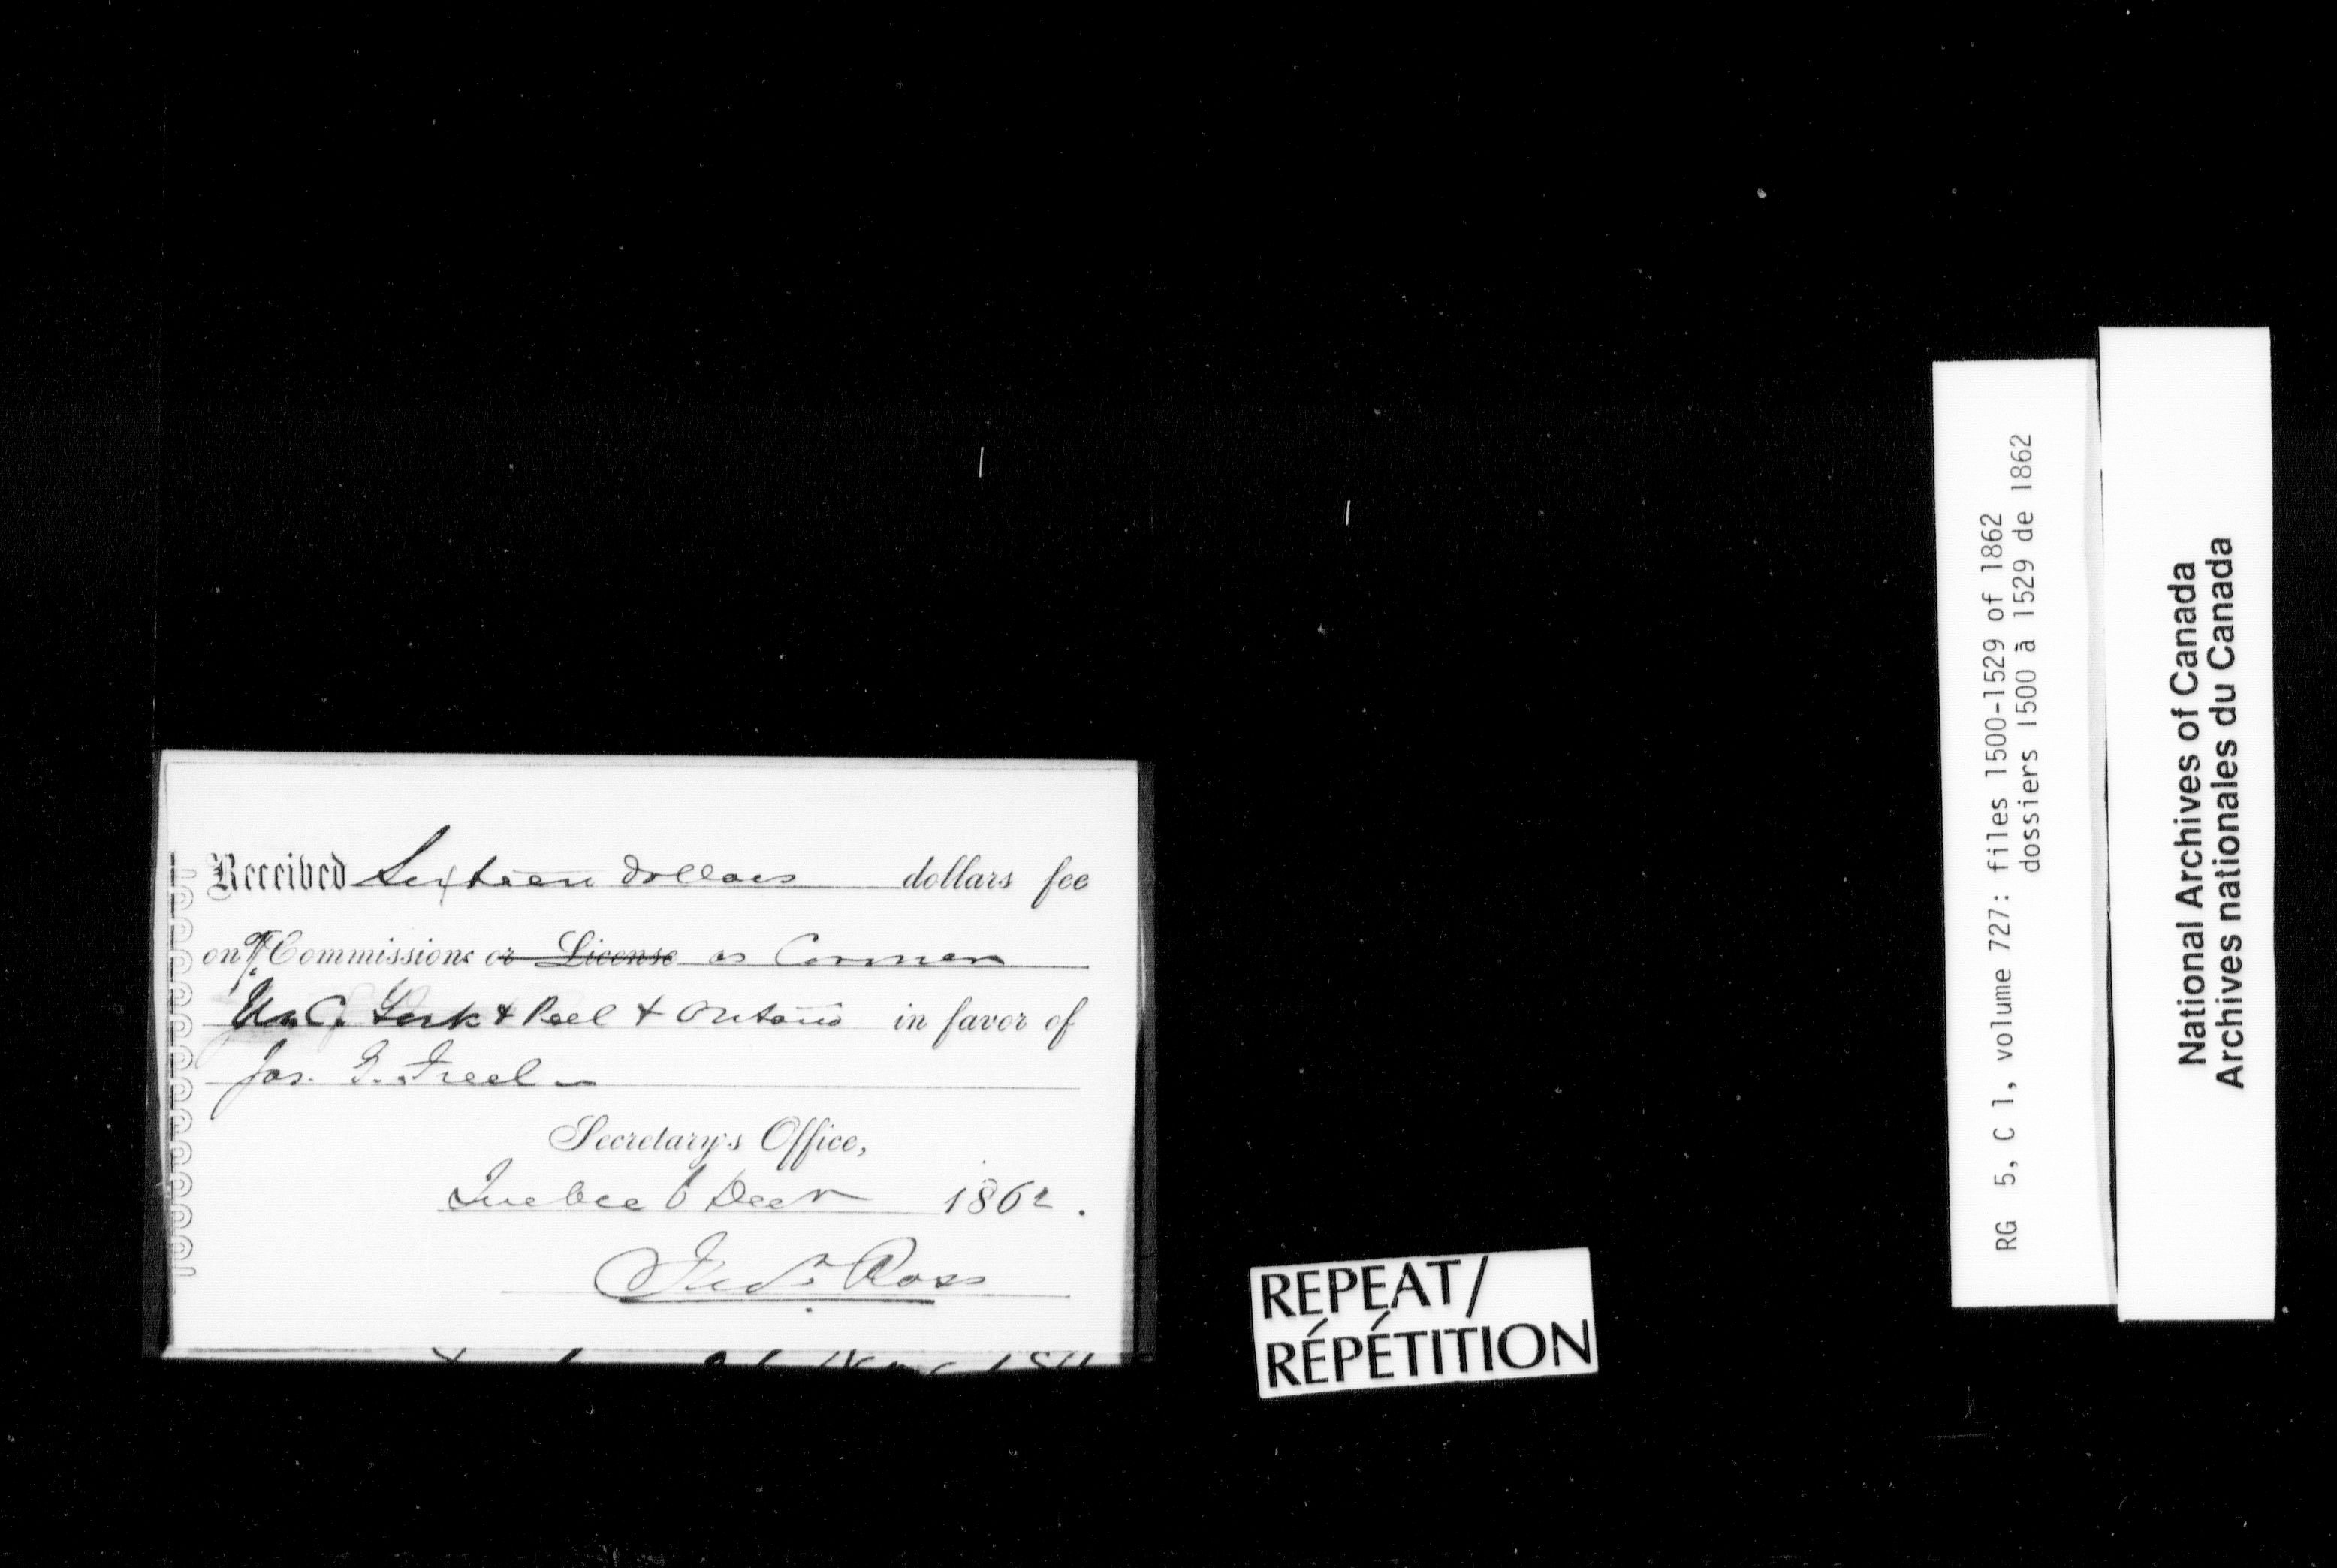 Received Sixteen dollars dollars fee
on Commissions or License as Coroner
U. C. York & Peel & Ontario in favor of
Jos. G. Freel
Secretary's Office,
Quebec 6 Decr 1862.
Fredk Ross
REPEAT/
RÉPÉTITION
RG 5, C 1, volume 727: files 1500-1529 of 1862
dossiers 1500 à 1529 de 1862
National Archives of Canada
Archives nationales du Canada